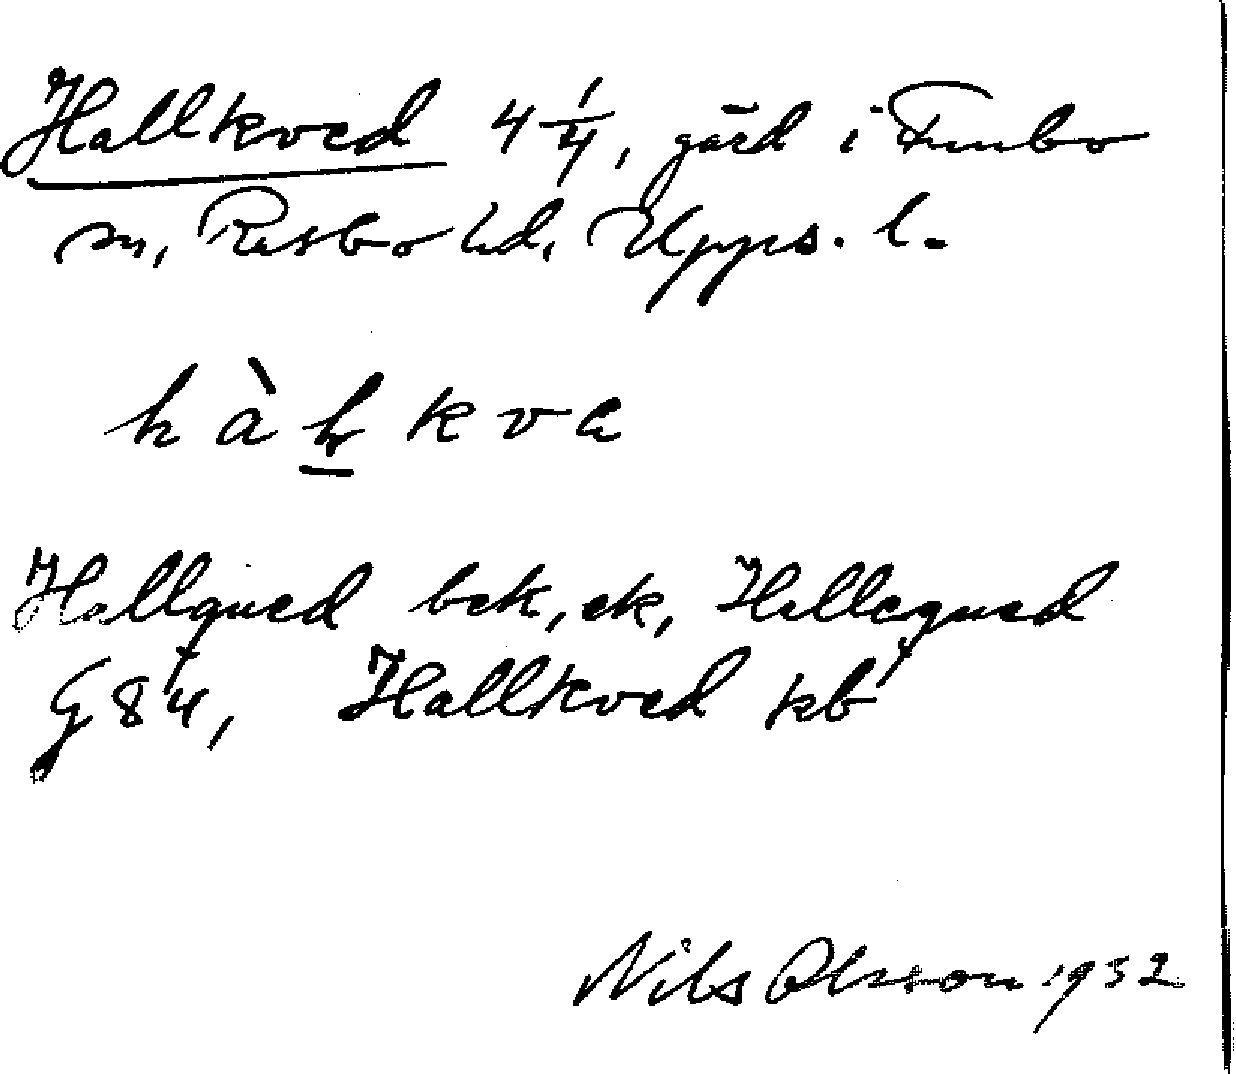 Hallkved 4 1/4, gård i Funbo
sn, Rasbo hd, Upps. l.
hàl̠kva
Hallqued bek, ek, Hallequed
G 84, Hallkved kb
Nils Olsson 1932